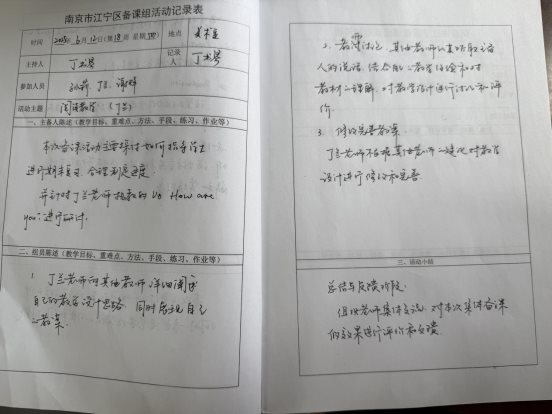 南京市江宁区备课组活动记录表
时间
2025年6月12日(第18周 星期四)
地点
主持人
记录人
参加人员
活动主题
阅读教学(丁兰)
一、主备人陈述(教学目标、重难点、方法、手段、练习、作业等)
本次备课活动主要探讨如何指导学生
进行期末复习,合理制定进度
并针对丁兰老师执教的U8 How are
you?进行研讨.
二、组员陈述(教学目标、重难点、方法、手段、练习、作业等)
1. 丁兰老师向其他教师详细阐述
自己的教学设计思路,同时展现自己
之教案.
2. 教案讨论,其他教师认真听取主备
人的说话,结合自己教学经验和对
教材之理解,对教学设计进行讨论和评
价.
3. 修改完善教案.
丁兰老师根据其他老师之建议对教学
设计进行修改和完善.
三、活动小结
总结与反馈阶段.
组织老师集体交流,对本次集体备课
的效果进行评价和反馈